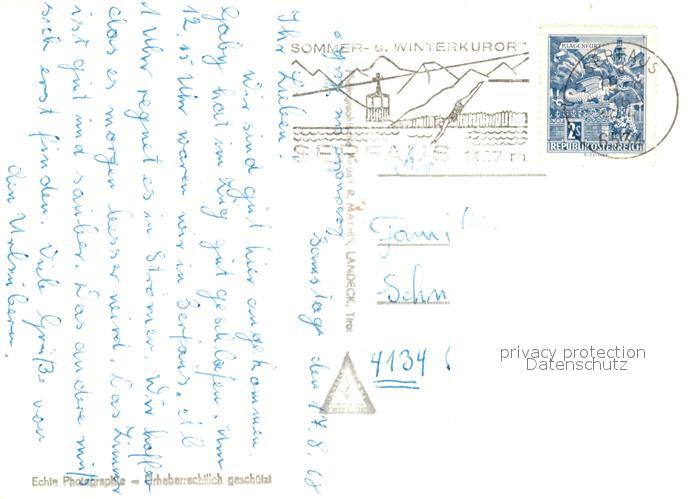 SOMMER- u. WINTERKURORT
SERFAUS 1427 m
KLAGENFURT
2S
REPUBLIK ÖSTERREICH
SERFAUS
Samstag den 17.8.68
Ihr Lieben!
Wir sind gut hier angekommen.
Gaby hat im Zug gut geschlafen. Um
12.15 Uhr waren wir in Serfaus. Ab
1 Uhr regnet es in Strömen. Wir hoffen
das es morgen besser wird. Das Zimmer
ist gut und sauber. Das andere muß
sich erst finden. Viele Grüße von
den Urlaubern.
R. MATHIS, LANDECK, Tirol
Fami
Schn
4134
privacy protection
Datenschutz
Echte Photographie – Urheberrechtlich geschützt